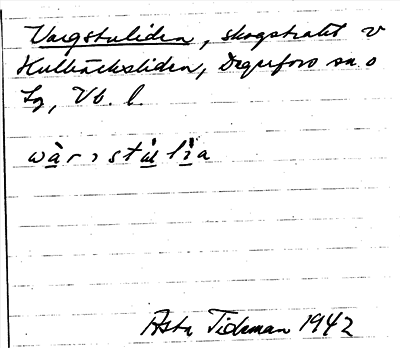 Vargstuliden, skogstrakt v
Kulbäcksliden, Degerfors sn o
Lg, Vb. l.
wàr₁stù̱lì̱a
Asta Tideman 1942